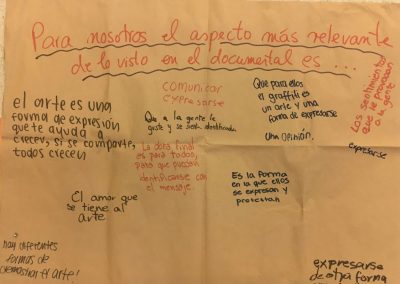 Para nosotros el aspecto más relevante
de lo visto en el documental es ...
comunicar
expresarse
el arte es una
forma de expresión
que te ayuda a
crecer, si se comparte,
todos crecen
Que a la gente le
guste y se sienta identificada
La obra final
es para todos,
para que puedan
identificarse con
el mensaje.
Que para ellos
el graffiti es
un arte y una
forma de expresarse
una opinión.
Los sentimientos
que le provocan
a la gente
expresarse
El amor que
se tiene al
arte
Es la forma
en la que ellos
se expresan y
protestan
hay diferentes
formas de
demostrar el arte!
expresarse
de otra forma